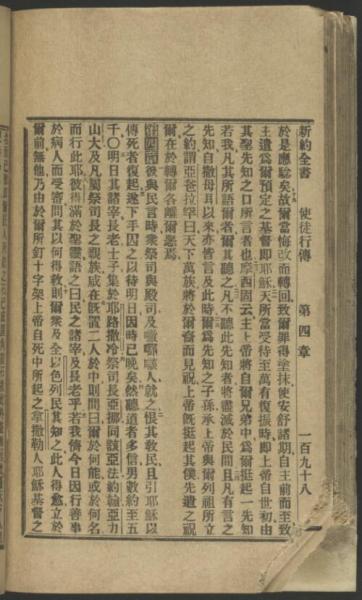 新約全書　使徒行傳　第四章　一百九十八
於是應驗矣故爾當悔改而轉回致爾罪得塗抹使安舒諸期自主前而至致
主遣爲爾預定之基督即耶穌天所當受待至萬有復振時即上帝自世初由
其聖先知之口所言者也摩西固云主上帝將自爾兄弟中爲爾挺起一先知
若我凡其所語爾者爾其聽之凡不聽此先知者將盡滅於民間且凡有言之
先知自撒母耳以來亦皆言及此時爾爲先知之子孫承上帝與爾列祖所立
之約謂亞伯拉罕曰天下萬族將於爾裔而見祝上帝旣挺起其僕先遣之祝
爾在於轉爾各離爾愆焉
第四章彼與民言時衆祭司與殿司及人就之恨其教民且引耶穌以
傳死者復起遂下手囚之以待明日因時已晚矣然聽道者多信男數約至五
千○明日其諸宰長老士子集於耶路撒冷祭司長亞挪同該亞法約翰亞力
山大及凡屬祭司長之親族咸在旣置二人於中則問曰爾於何能或於何名
而行此耶彼得滿於聖靈語之曰民之諸宰及長老乎若我儕今日因行善事
於病人而受審問其以何得救則爾衆及全以色列民其知之此人得愈立於
爾前無他乃由於爾所釘十字架上帝自死中所起之拿撒勒人耶穌基督之